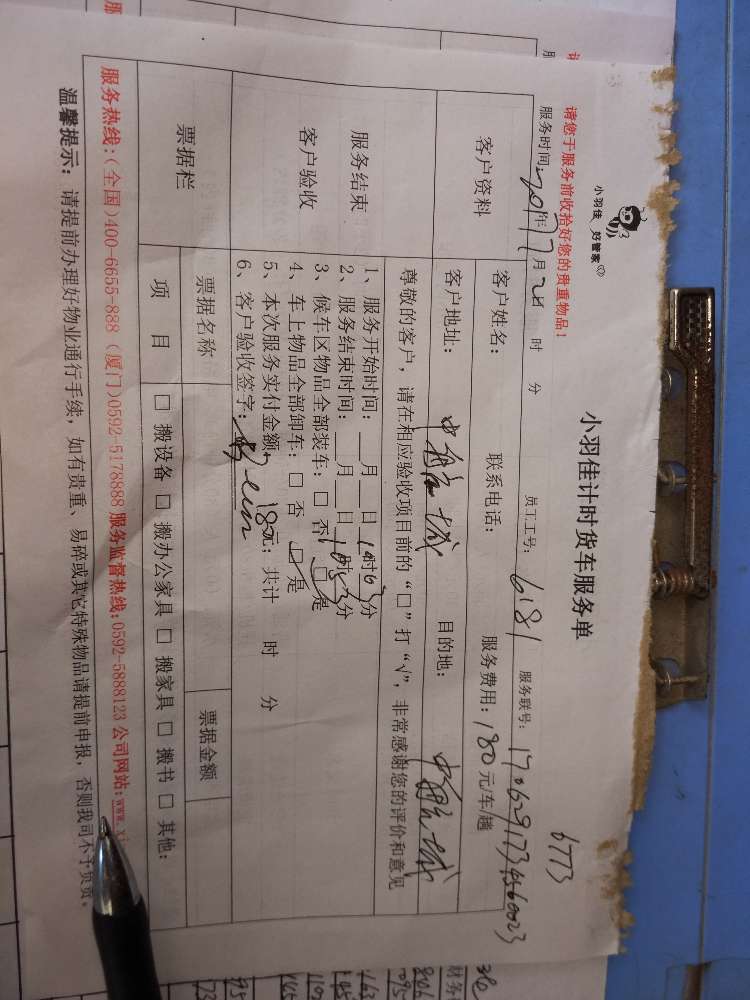 小羽佳 好管家
小羽佳计时货车服务单
6773
请您于服务前收拾好您的贵重物品！
服务时间: 2017年7月2日 时 分 员工工号: 6181 服务联号:
客户资料
客户姓名: 联系电话: 服务费用: 180元/车/趟
客户地址: 目的地:
尊敬的客户，请在相应验收项目前的“□”打“√”，非常感谢您的评价和意见
服务结束
客户验收
1、服务开始时间: __月__日 时 分
2、服务结束时间: __月__日 时 分
3、候车区物品全部装车: □ 否 □ 是
4、车上物品全部卸车: □ 否 □ 是
5、本次服务实付金额: 180元; 共计 时 分
6、客户验收签字:
票据栏
票据名称 票据金额
项 目 □ 搬设备 □ 搬办公家具 □ 搬家具 □ 搬书 □ 其他:
服务热线:(全国)400-6655-888 (厦门)0592-5178888 服务监督热线:0592-5888123 公司网站:www.xi
温馨提示: 请提前办理好物业通行手续，如有贵重、易碎或其它特殊物品请提前申报，否则我司不予负责。
财务